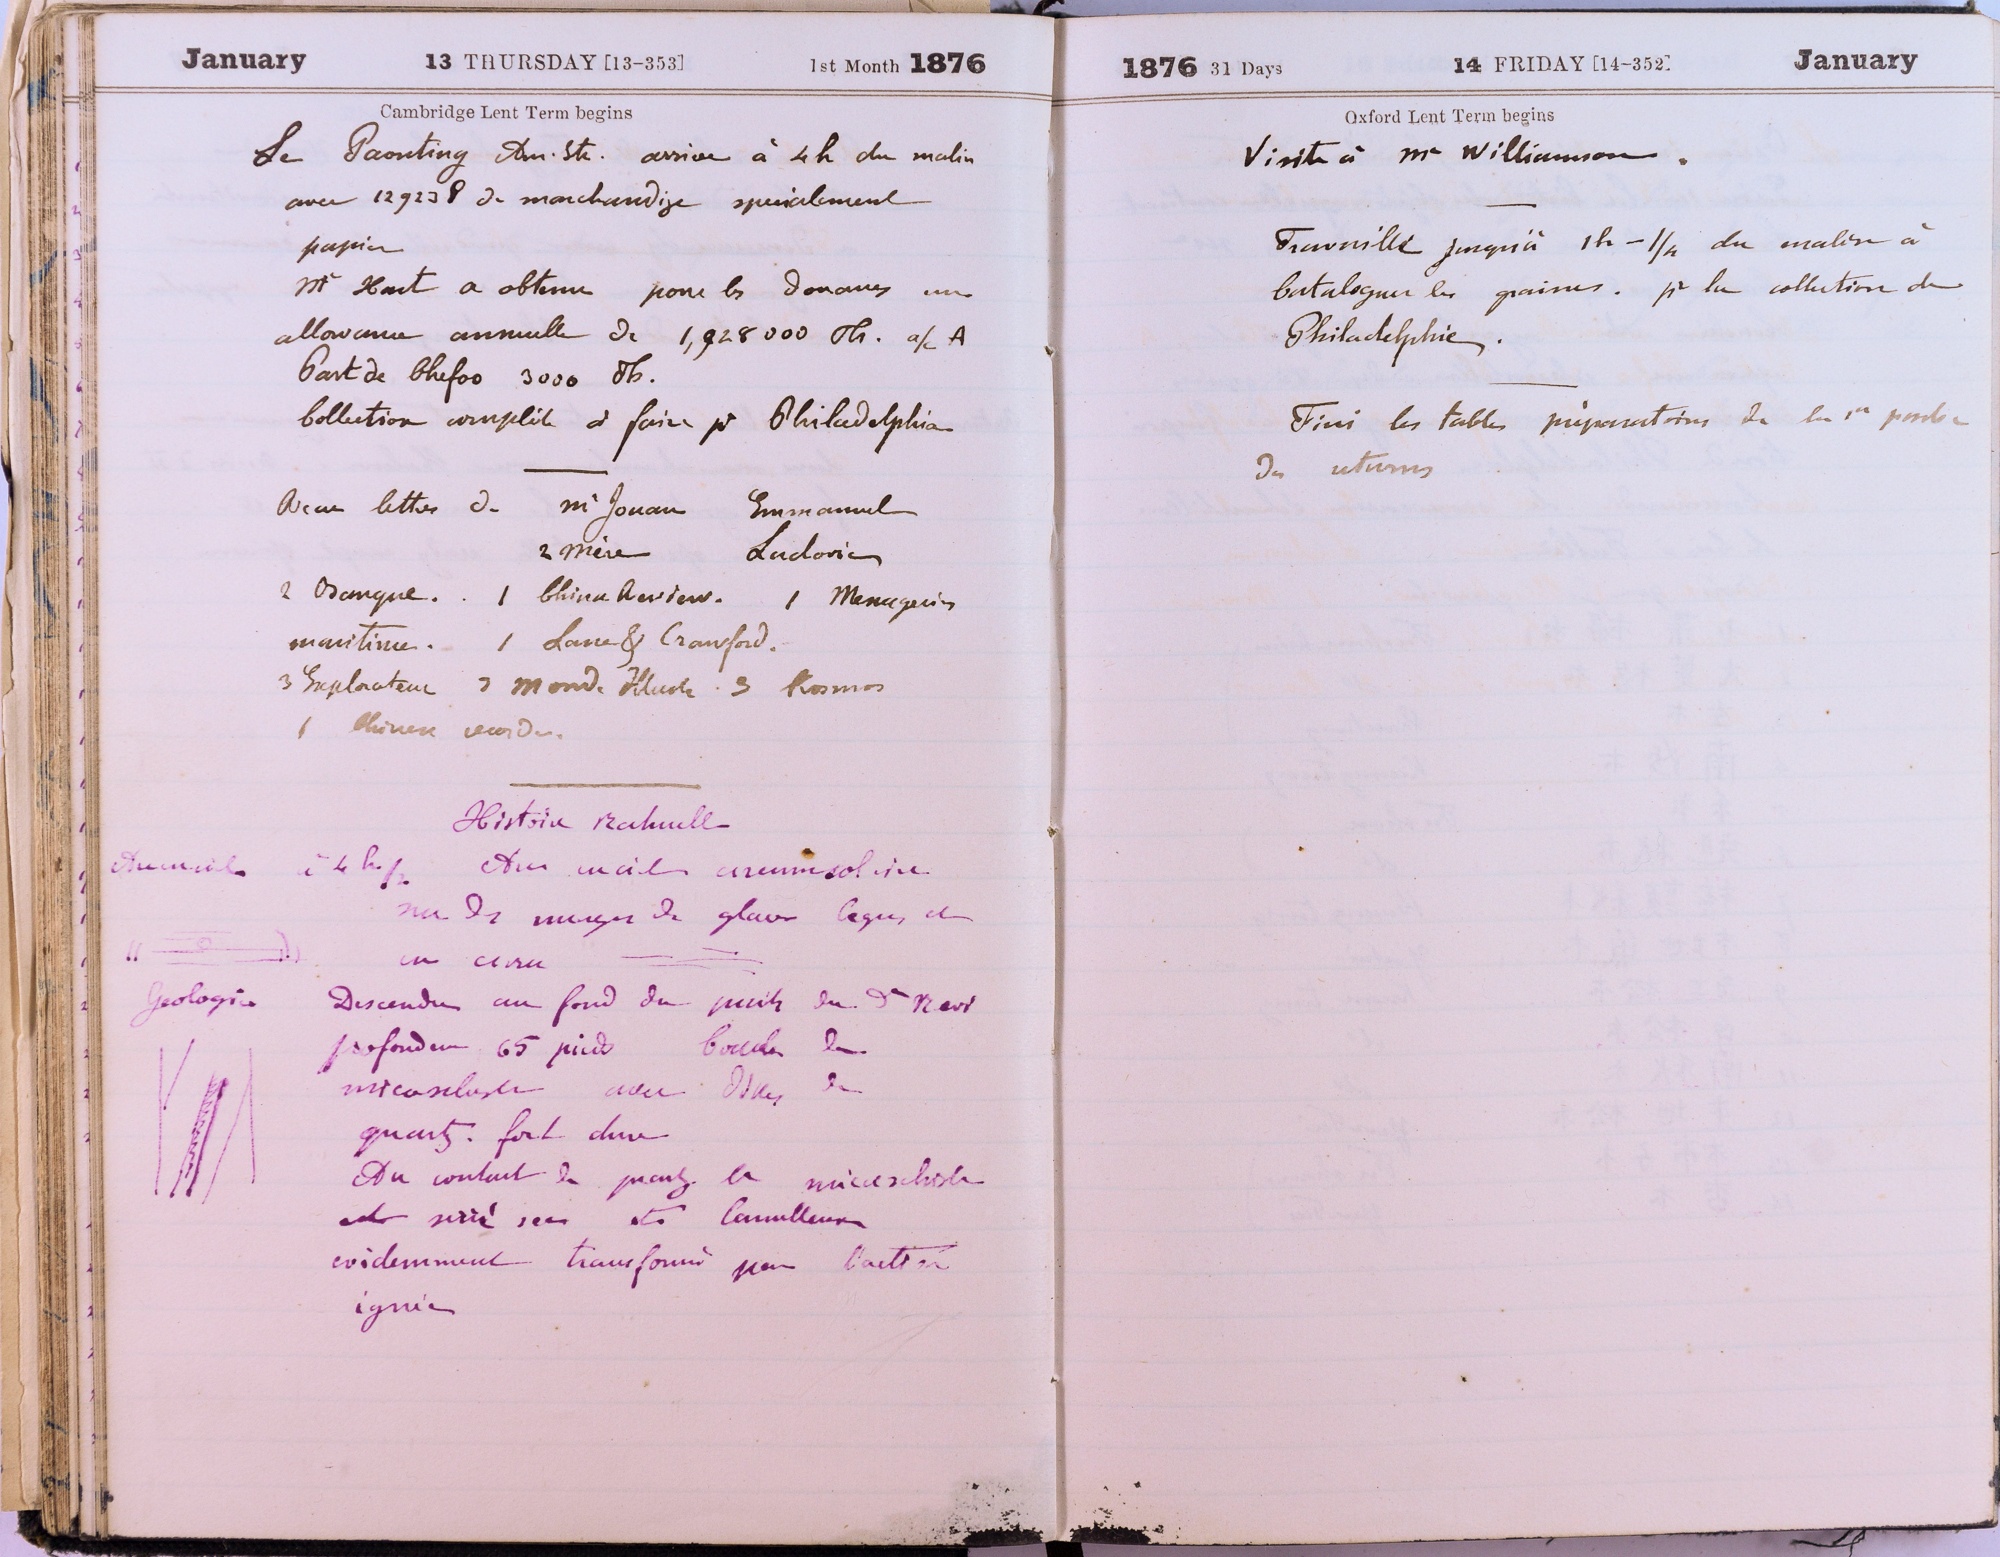 January 13 THURSDAY [13-353] 1st Month 1876
Cambridge Lent Term begins
Le Paouting Am. Str. arrive à 4h du matin
avec 12923 P de marchandize specialement
papier
Mr Hart a obtenu pour les Douanes une
allowance annuelle de 1,928000 Th. a/c A
Part de Chefoo 3000 Th.
Collection complète à faire pr Philadelphia
Recu lettres de Mr Jouan Emmanuel
2 mère Ludovic
2 Banque. 1 China Review. 1 Messageries
maritime. 1 Lane & Crawford.
3 Explorateur 3 Monde Illustr 3 Kosmos
1 Chinese recorder.
Histoire naturelle
Arcenciel à 4 h 1/2 Arc en ciel circumsolaire
sur des nuages de glace legers et
en cirrus
Geologie Descendu au fond du puits du Dr Nevi
profondeur 65 pieds Couches de
micaschiste avec Dikes de
quartz. fort dure
Au contact de quartz le micaschiste
est serré sec et lamelleux
evidemment transformé par l'action
ignée
1876 31 Days 14 FRIDAY [14-352] January
Oxford Lent Term begins
Visite à Mr Williamson.
Travaillé jusqu'à 1h-1/2 du matin à
Cataloguer les graines. pr la collection de
Philadelphie.
Fini les tables préparatoires de la 1re
des returns